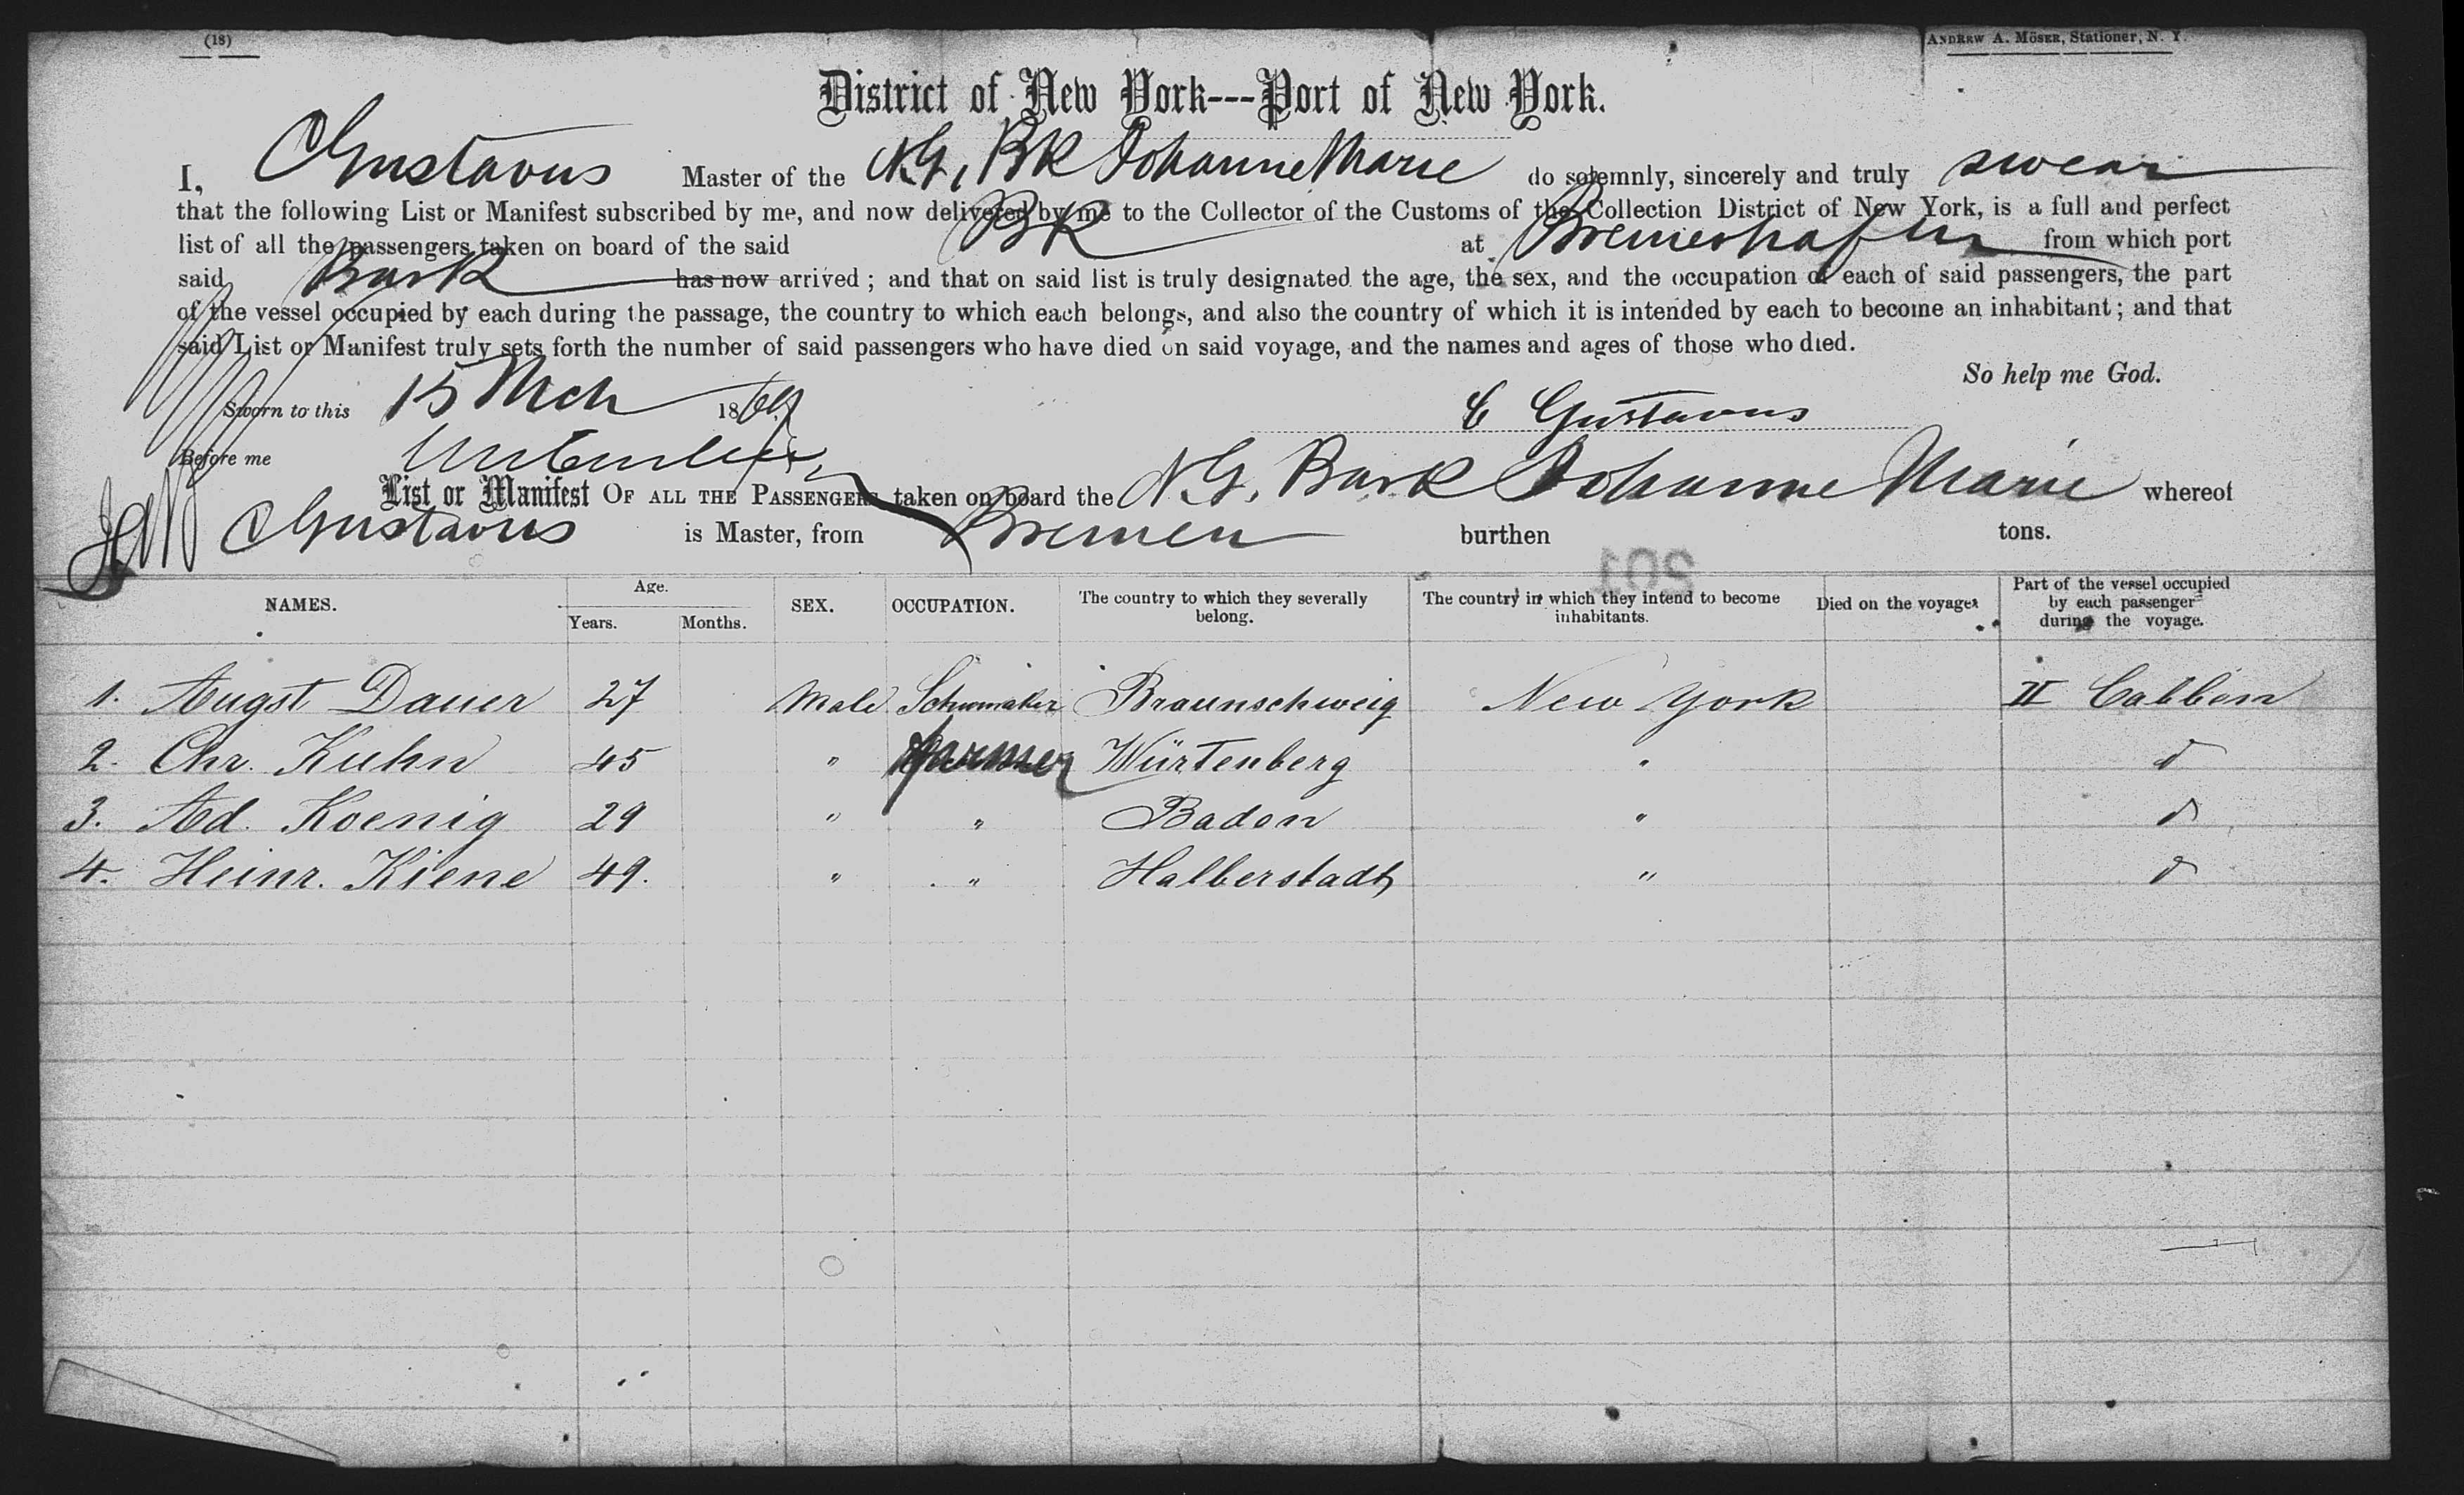 (18)
ANDREW A. MÖSER, Stationer, N. Y.
District of New York---Port of New York.
I, C Gustavus Master of the N.G. BK Johanne Marie do solemnly, sincerely and truly swear
that the following List or Manifest subscribed by me, and now delivered by me to the Collector of the Customs of the Collection District of New York, is a full and perfect
list of all the passengers taken on board of the said BK at Bremerhafen from which port
said Bark has now arrived ; and that on said list is truly designated the age, the sex, and the occupation of each of said passengers, the part
of the vessel occupied by each during the passage, the country to which each belongs, and also the country of which it is intended by each to become an inhabitant ; and that
said List or Manifest truly sets forth the number of said passengers who have died on said voyage, and the names and ages of those who died.
So help me God.
Sworn to this 15 Mch 1869
C Gustavus
Before me
List or Manifest OF ALL THE PASSENGERS taken on board the N.G. Bark Johanne Marie whereof
C Gustavus is Master, from Bremen burthen tons.
201
NAMES. Age. Years. Months. SEX. OCCUPATION. The country to which they severally belong. The country in which they intend to become inhabitants. Died on the voyage. Part of the vessel occupied by each passenger during the voyage.
1. Augst Dauer 27 Male Schumaker Braunschweig New York II Cabbem
2. Chr. Kuhn 45 " farmer Würtenberg " d
3. Ad. Koenig 29 " " Baden " d
4. Heinr. Kiene 49. " " Halberstadt " d